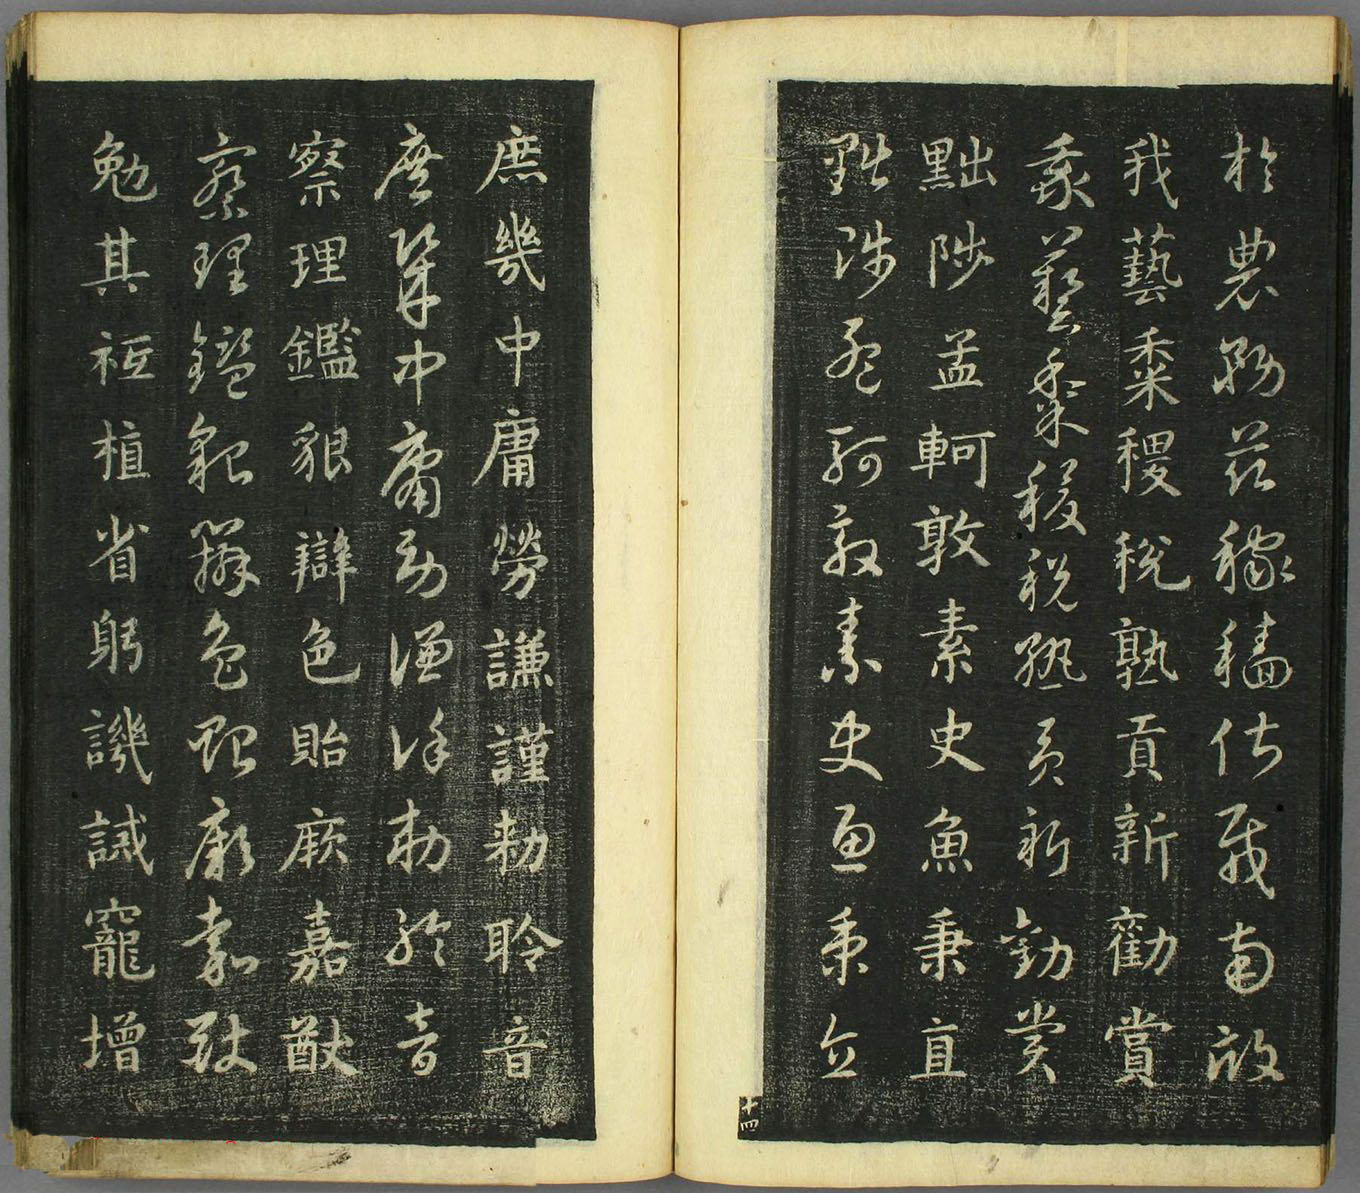 於農務茲稼穡俶載南畝
我藝黍稷稅熟貢新勸賞
我藝黍稷稅熟貢新勸賞
黜陟孟軻敦素史魚秉直
黜陟孟軻敦素史魚秉直
十四
庶幾中庸勞謙謹勑聆音
庶幾中庸勞謙謹勑聆音
察理鑑貌辯色貽厥嘉猷
察理鑑貌辯色貽厥嘉猷
勉其祗植省躬譏誡寵增